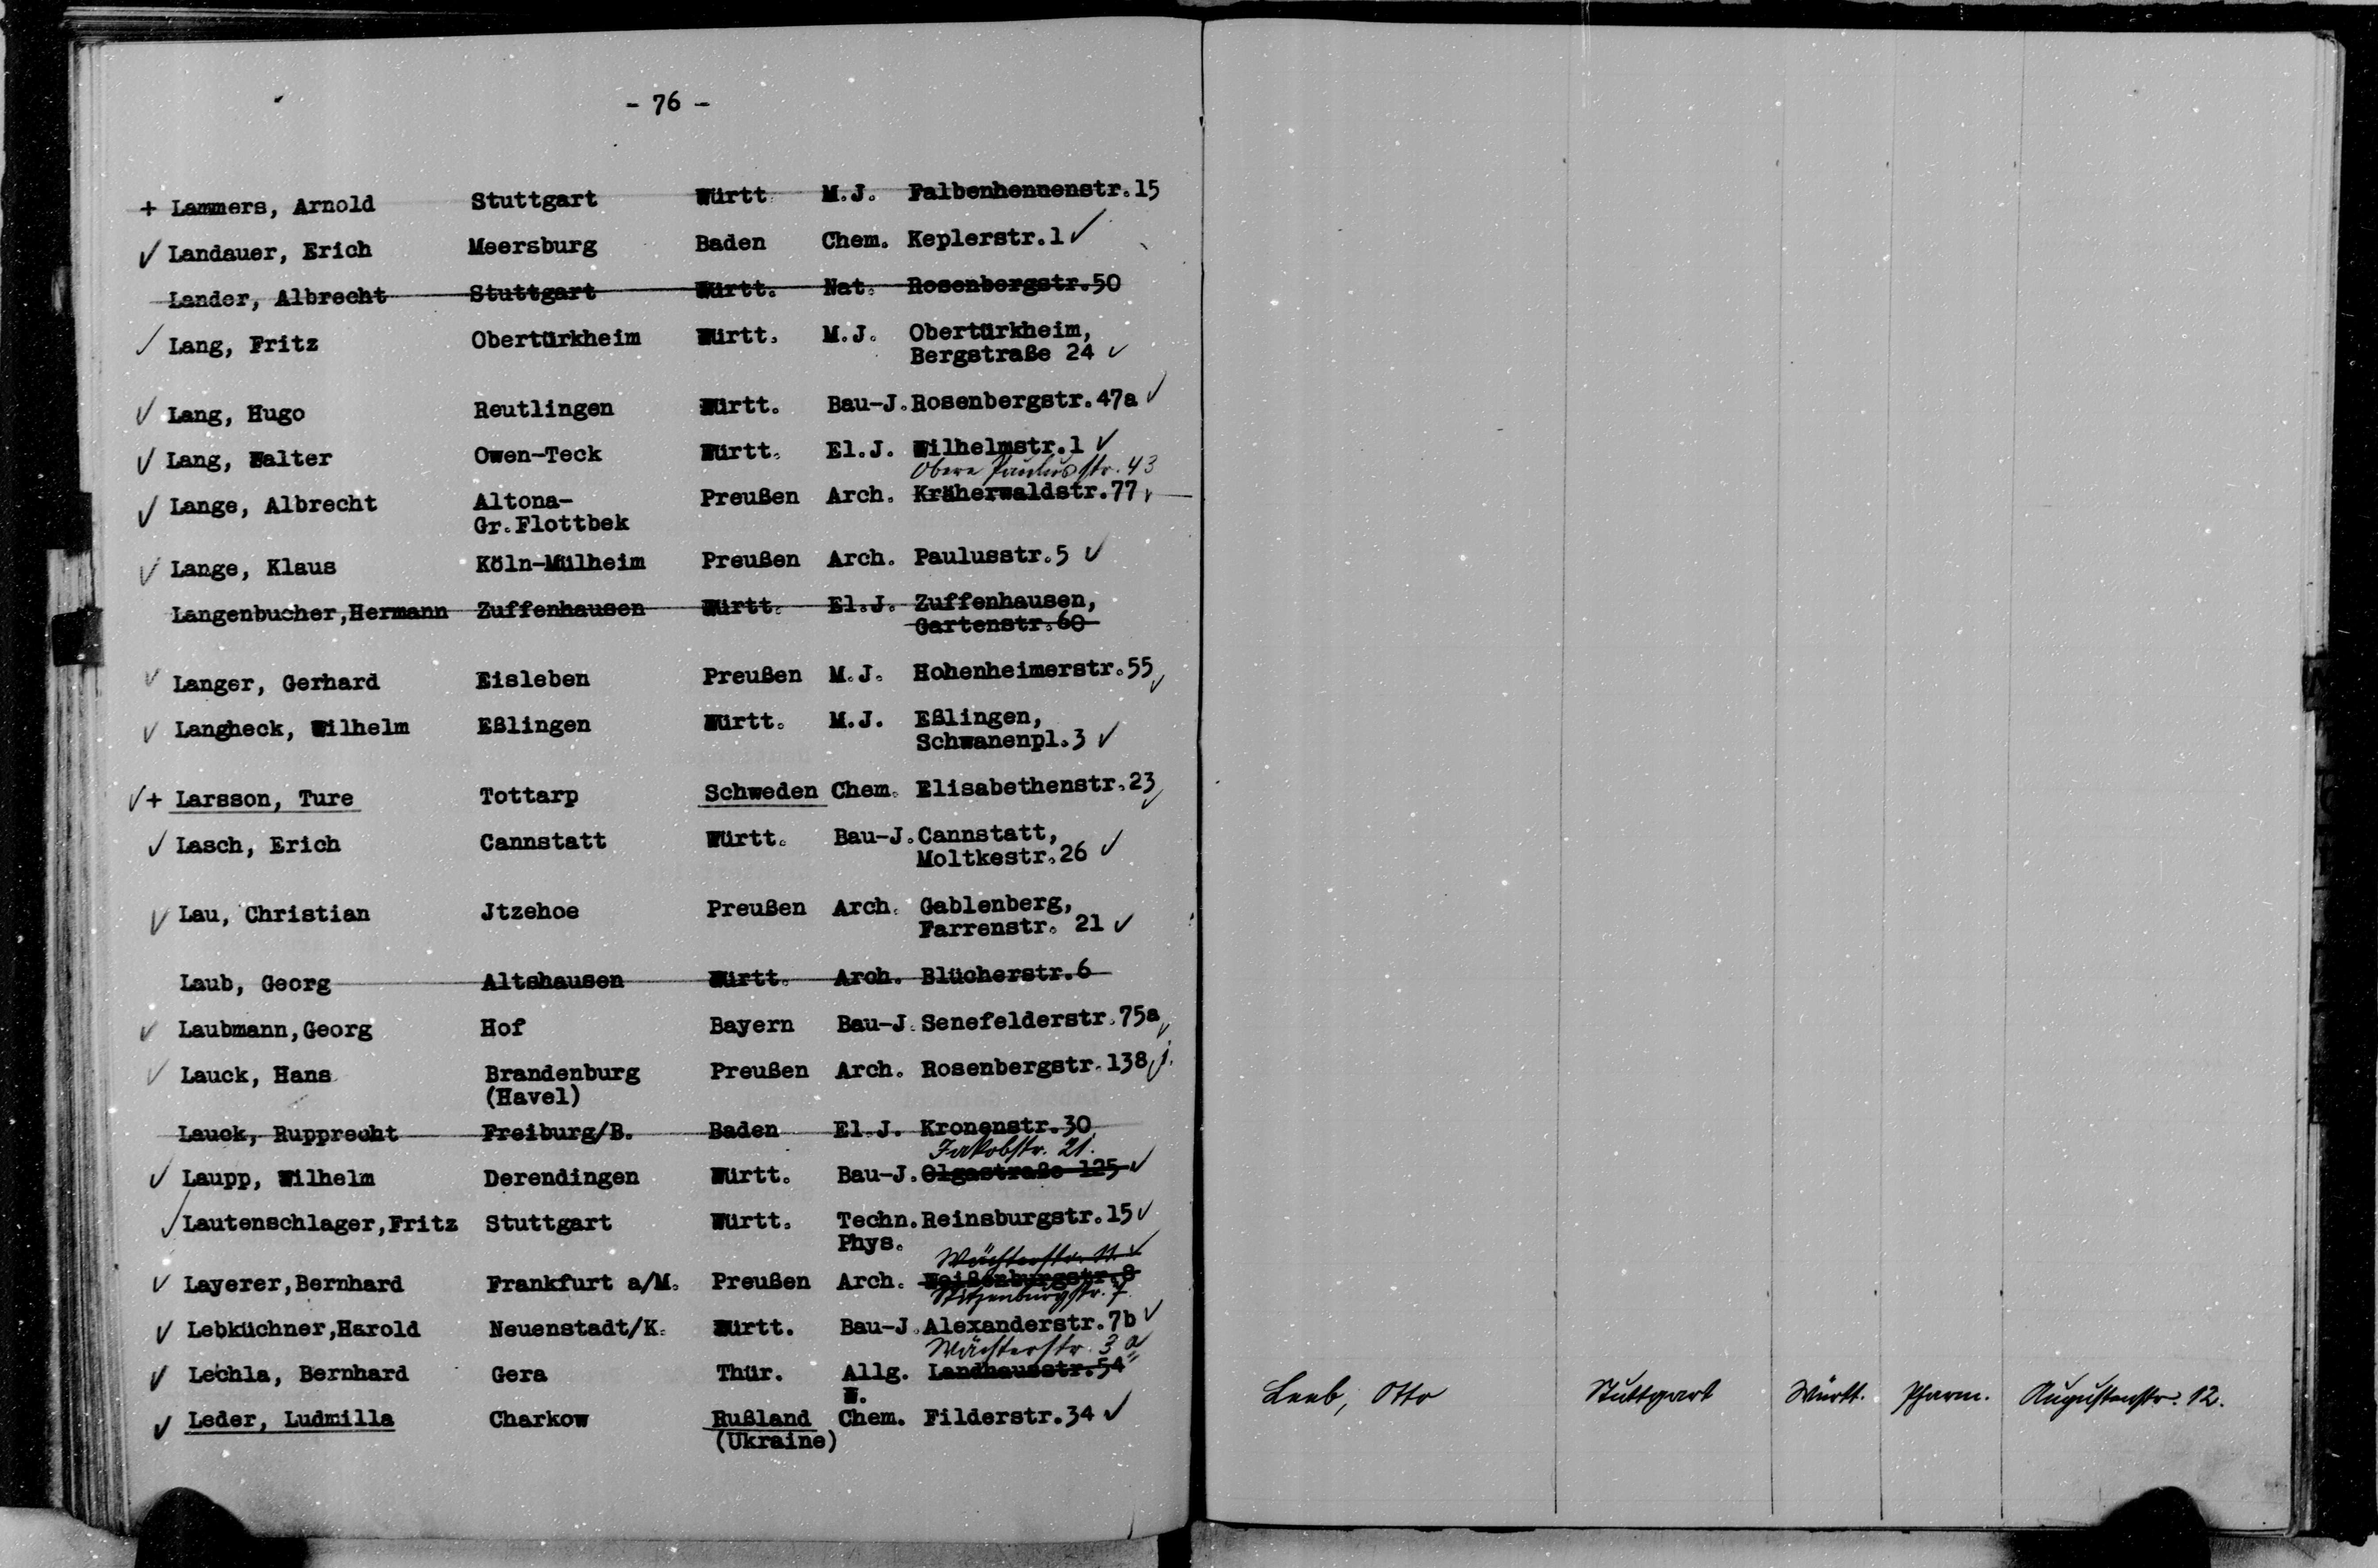 - 76 -
+ Lammers, Arnold Stuttgart Württ. M.J. Falbenhennenstr.15
✓ Landauer, Erich Meersburg Baden Chem. Keplerstr.1 ✓
Lander, Albrecht Stuttgart Württ. Nat. Rosenbergstr.50
✓ Lang, Fritz Obertürkheim Württ. M.J. Obertürkheim,
Bergstraße 24 ✓
✓ Lang, Hugo Reutlingen Württ. Bau-J. Rosenbergstr.47a ✓
✓ Lang, Walter Owen-Teck Württ. El.J. Wilhelmstr.1 ✓
Obere Paulusstr. 43
✓ Lange, Albrecht Altona- Preußen Arch. Kräherwaldstr.77 ✓
Gr.Flottbek
✓ Lange, Klaus Köln-Mülheim Preußen Arch. Paulusstr.5 ✓
Langenbucher,Hermann Zuffenhausen Württ. El.J. Zuffenhausen,
Gartenstr.60
✓ Langer, Gerhard Eisleben Preußen M.J. Hohenheimerstr.55 ✓
✓ Langheck, Wilhelm Eßlingen Württ. M.J. Eßlingen,
Schwanenpl.3 ✓
✓+ Larsson, Ture Tottarp Schweden Chem. Elisabethenstr.23 ✓
✓ Lasch, Erich Cannstatt Württ. Bau-J. Cannstatt,
Moltkestr.26 ✓
✓ Lau, Christian Jtzehoe Preußen Arch. Gablenberg,
Farrenstr. 21 ✓
Laub, Georg Altshausen Württ. Arch. Blücherstr.6
✓ Laubmann,Georg Hof Bayern Bau-J. Senefelderstr.75a ✓
✓ Lauck, Hans Brandenburg Preußen Arch. Rosenbergstr.138 j. ✓
(Havel)
Lauck, Rupprecht Freiburg/B. Baden El.J. Kronenstr.30
Jakobstr. 21.
✓ Laupp, Wilhelm Derendingen Württ. Bau-J. Olgastraße 125 ✓
✓ Lautenschlager,Fritz Stuttgart Württ. Techn. Reinsburgstr.15 ✓
Phys.
Wächterstr. 11. ✓
✓ Layerer,Bernhard Frankfurt a/M. Preußen Arch. Weißenburgstr.8
Stitzenburgstr. 7.
✓ Lebküchner,Harold Neuenstadt/K. Württ. Bau-J. Alexanderstr.7b ✓
Wächterstr. 3 a
✓ Lechla, Bernhard Gera Thür. Allg. Landhausstr.54
W.
✓ Leder, Ludmilla Charkow Rußland Chem. Filderstr.34 ✓
(Ukraine)
Leeb, Otto Stuttgart Württ. Pharm. Augustenstr. 12.